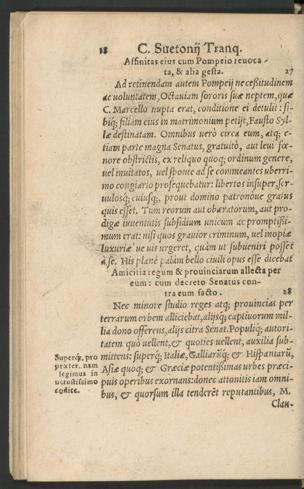 18 C. Suetonij Tranq.
Affinitas eius cum Pompeio reuoca-
ta, & alia gesta. 27
Ad retinendam autem Pompeij necessitudinem
ac voluntatem, Octauiam sororis suæ neptem, quæ
C. Marcello nupta erat, conditione ei detulit: si-
biq; filiam eius in matrimonium petijt, Fausto Syl-
læ destinatam. Omnibus verò circa eum, atq; e-
tiam parte magna Senatus, gratuitò, aut leui fœ-
nore obstrictis, ex reliquo quoq; ordinum genere,
vel inuitatos, vel sponte ad se commeantes vberri-
mo congiario prosequebatur: libertos insuper, ser-
uulosq; cuiusq;, prout domino patronóue gratus
quis esset. Tum reorum aut obæratorum, aut pro-
digæ iuuentutis subsidium vnicum ac promptissi-
mum erat: nisi quos grauior criminum, vel inopiæ
luxuriæ ue vis vrgeret, quàm vt subueniri posset
à se. His planè palàm bello ciuili opus esse dicebat
Amicitia regum & prouinciarum allecta per
eum: cum decreto Senatus con-
tra eum facto. 28
Nec minore studio reges atq; prouincias per
terrarum orbem alliciebat, alijsq; captiuorum mil-
lia dono offerens, alijs citra Senat. Populiq; autori-
tatem quò vellent, & quoties vellent, auxilia sub-
mittens: superq; Italiæ, Galliarūq; & Hispaniarū,
Asiæ quoq; & Græciæ potentissimas vrbes præci-
puis operibus exornans: donec attonitis iam omni-
bus, & quorsum illa tenderēt reputantibus, M.
Clau-
Superq; pro
præter. nam
legimus in
vetustissimo
codice.